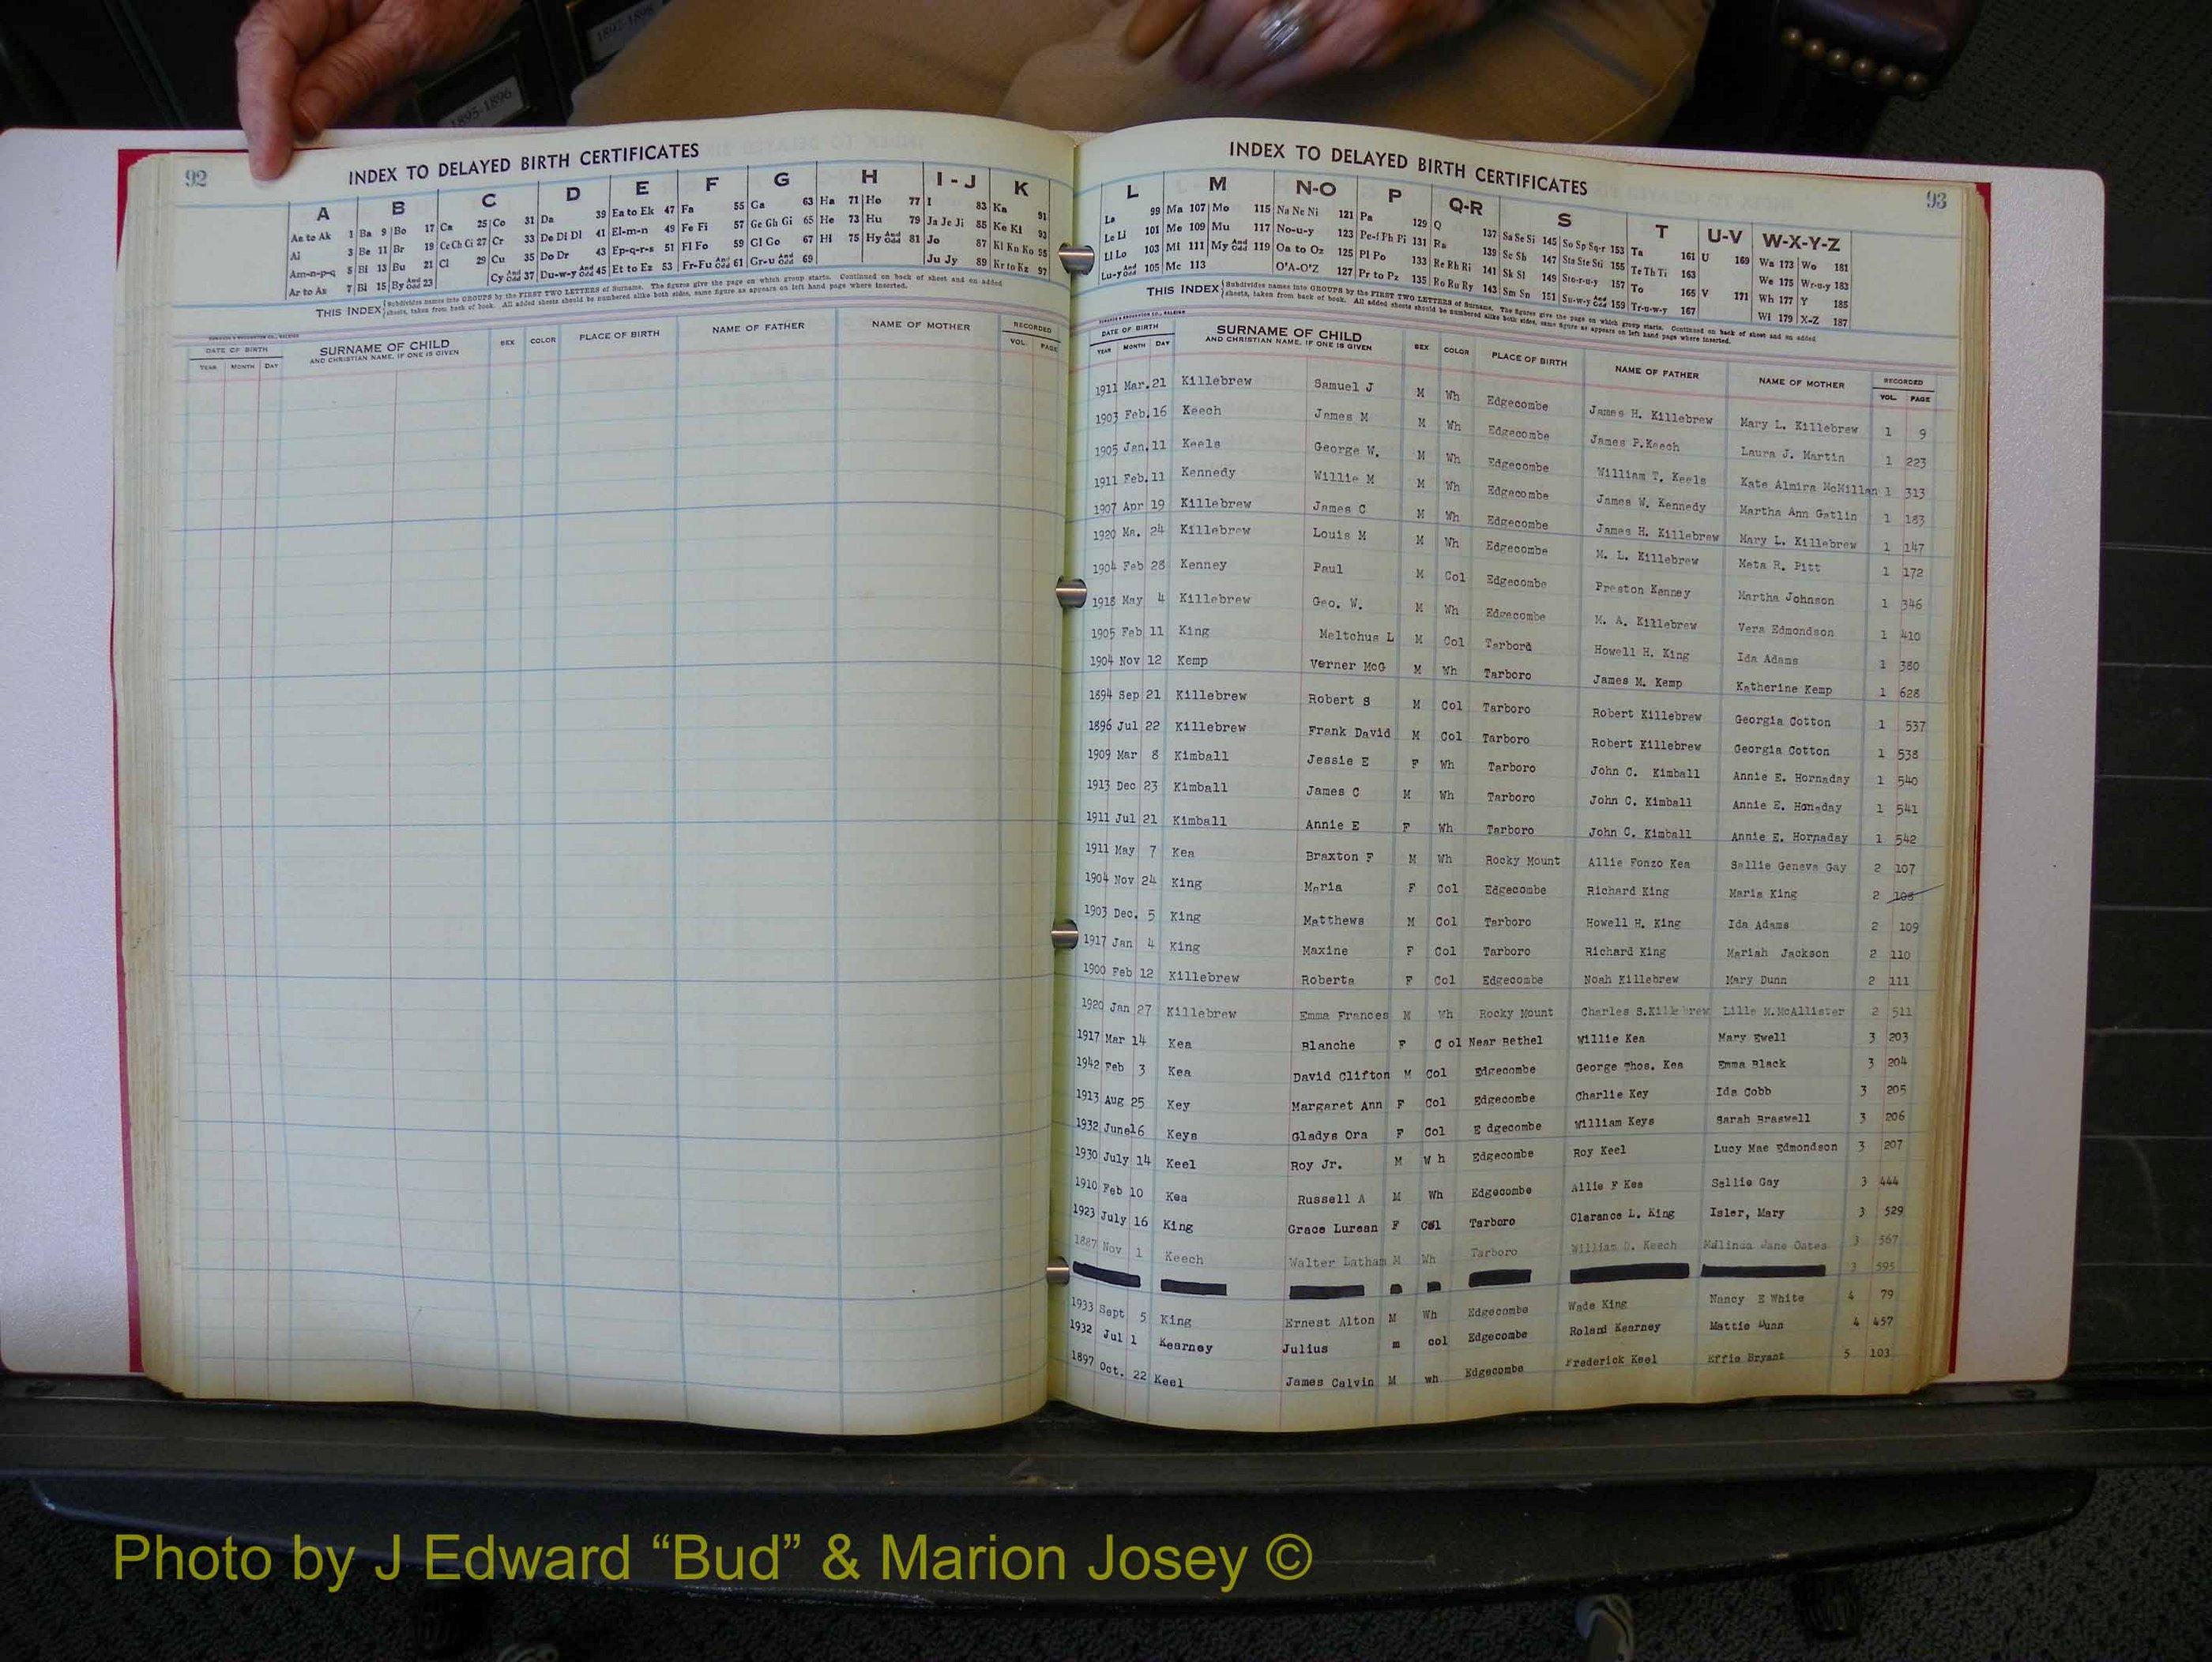 1897-1898
1895-1896
92
INDEX TO DELAYED BIRTH CERTIFICATES
A B C D E F G H I - J K
Aa to Ak 1 Ba 9 Bo 17 Ca 25 Co 31 Da 39 Ea to Ek 47 Fa 55 Ga 63 Ha 71 Ho 77 I 83 Ka 91
Al 3 Be 11 Br 19 Ce Ch Ci 27 Cr 33 De Di Dl 41 El-m-n 49 Fe Fi 57 Ge Gh Gi 65 He 73 Hu 79 Ja Je Ji 85 Ke Ki 93
Am-n-p-q 5 Bi 13 Bu 21 Cl 29 Cu 35 Do Dr 43 Ep-q-r-s 51 Fl Fo 59 Gl Go 67 Hi 75 Hy And Odd 81 Jo 87 Kl Kn Ko 95
Ar to Az 7 Bl 15 By And Odd 23 Cy And Odd 37 Du-w-y And Odd 45 Et to Ez 53 Fr-Fu And Odd 61 Gr-u And Odd 69 Ju Jy 89 Kr to Kz 97
THIS INDEX { Subdivides names into GROUPS by the FIRST TWO LETTERS of Surname. The figures give the page on which group starts. Continued on back of sheet and on added
sheets, taken from back of book. All added sheets should be numbered alike both sides, same figure as appears on left hand page where inserted.
DATE OF BIRTH SURNAME OF CHILD SEX COLOR PLACE OF BIRTH NAME OF FATHER NAME OF MOTHER RECORDED
YEAR MONTH DAY AND CHRISTIAN NAME, IF ONE IS GIVEN VOL. PAGE
INDEX TO DELAYED BIRTH CERTIFICATES
93
L M N-O P Q-R S T U-V W-X-Y-Z
La 99 Ma 107 Mo 115 Na Ne Ni 121 Pa 129 Q 137 Sa Se Si 145 So Sp Sq-r 153 Ta 161 U 169 Wa 173 Wo 181
Le Li 101 Me 109 Mu 117 No-u-y 123 Pe-f Ph Pi 131 Ra 139 Sc Sh 147 Sta Ste Sti 155 Te Th Ti 163 We 175 Wr-u-y 183
Ll Lo 103 Mi 111 My And Odd 119 Oa to Oz 125 Pl Po 133 Re Rh Ri 141 Sk Sl 149 Sto-r-u-y 157 To 165 V 171 Wh 177 Y 185
Lu-y And Odd 105 Mc 113 O'A-O'Z 127 Pr to Pz 135 Ro Ru Ry 143 Sm Sn 151 Su-w-y And Odd 159 Tr-u-w-y 167 Wi 179 X-Z 187
THIS INDEX { Subdivides names into GROUPS by the FIRST TWO LETTERS of Surname. The figures give the page on which group starts. Continued on back of sheet and on added
sheets, taken from back of book. All added sheets should be numbered alike both sides, same figure as appears on left hand page where inserted.
DATE OF BIRTH SURNAME OF CHILD SEX COLOR PLACE OF BIRTH NAME OF FATHER NAME OF MOTHER RECORDED
YEAR MONTH DAY AND CHRISTIAN NAME, IF ONE IS GIVEN VOL. PAGE
1911 Mar. 21 Killebrew Samuel J M Wh Edgecombe James H. Killebrew Mary L. Killebrew 1 9
1903 Feb. 16 Keech James M M Wh Edgecombe James P.Keech Laura J. Martin 1 223
1905 Jan. 11 Keels George W. M Wh Edgecombe William T. Keels Kate Almira McMillan 1 313
1911 Feb. 11 Kennedy Willie M M Wh Edgecombe James W. Kennedy Martha Ann Gatlin 1 183
1907 Apr 19 Killebrew James C M Wh Edgecombe James H. Killebrew Mary L. Killebrew 1 147
1920 Ma. 24 Killebrew Louis M M Wh Edgecombe M. L. Killebrew Meta R. Pitt 1 172
1904 Feb 28 Kenney Paul M Col Edgecombe Preston Kenney Martha Johnson 1 346
1918 May 4 Killebrew Geo. W. M Wh Edgecombe M. A. Killebrew Vera Edmondson 1 410
1905 Feb 11 King Meltchus L M Col Tarboro Howell H. King Ida Adams 1 380
1904 Nov 12 Kemp Verner McG M Wh Tarboro James M. Kemp Katherine Kemp 1 628
1894 Sep 21 Killebrew Robert S M Col Tarboro Robert Killebrew Georgia Cotton 1 537
1896 Jul 22 Killebrew Frank David M Col Tarboro Robert Killebrew Georgia Cotton 1 538
1909 Mar 8 Kimball Jessie E F Wh Tarboro John C. Kimball Annie E. Hornaday 1 540
1913 Dec 23 Kimball James C M Wh Tarboro John C. Kimball Annie E. Honaday 1 541
1911 Jul 21 Kimball Annie E F Wh Tarboro John C. Kimball Annie E. Hornaday 1 542
1911 May 7 Kea Braxton F M Wh Rocky Mount Allie Fonzo Kea Sallie Geneva Gay 2 107
1904 Nov 24 King Maria F Col Edgecombe Richard King Maria King 2 108
1903 Dec. 5 King Matthews M Col Tarboro Howell H. King Ida Adams 2 109
1917 Jan 4 King Maxine F Col Tarboro Richard King Mariah Jackson 2 110
1900 Feb 12 Killebrew Roberta F Col Edgecombe Noah Killebrew Mary Dunn 2 111
1920 Jan 27 Killebrew Emma Frances M Wh Rocky Mount Charles S.Killebrew Lille M.McAllister 2 511
1917 Mar 14 Kea Blanche F C ol Near Bethel Willie Kea Mary Ewell 3 203
1942 Feb 3 Kea David Clifton M Col Edgecombe George Thos. Kea Emma Black 3 204
1913 Aug 25 Key Margaret Ann F Col Edgecombe Charlie Key Ida Cobb 3 205
1932 June16 Keys Gladys Ora F Col E dgecombe William Keys Sarah Braswell 3 206
1930 July 14 Keel Roy Jr. M W h Edgecombe Roy Keel Lucy Mae Edmondson 3 207
1910 Feb 10 Kea Russell A M Wh Edgecombe Allie F Kea Sallie Gay 3 444
1923 July 16 King Grace Lurean F Col Tarboro Clarance L. King Isler, Mary 3 529
1887 Nov 1 Keech Walter Latham M Wh Tarboro William D. Keech Malinda Jane Oates 3 567
3 595
1933 Sept 5 King Ernest Alton M Wh Edgecombe Wade King Nancy E White 4 79
1932 Jul 1 Kearney Julius m col Edgecombe Roland Kearney Mattie Dunn 4 457
1897 Oct. 22 Keel James Calvin M wh Edgecombe Frederick Keel Effie Bryant 5 103
Photo by J Edward “Bud” & Marion Josey ©